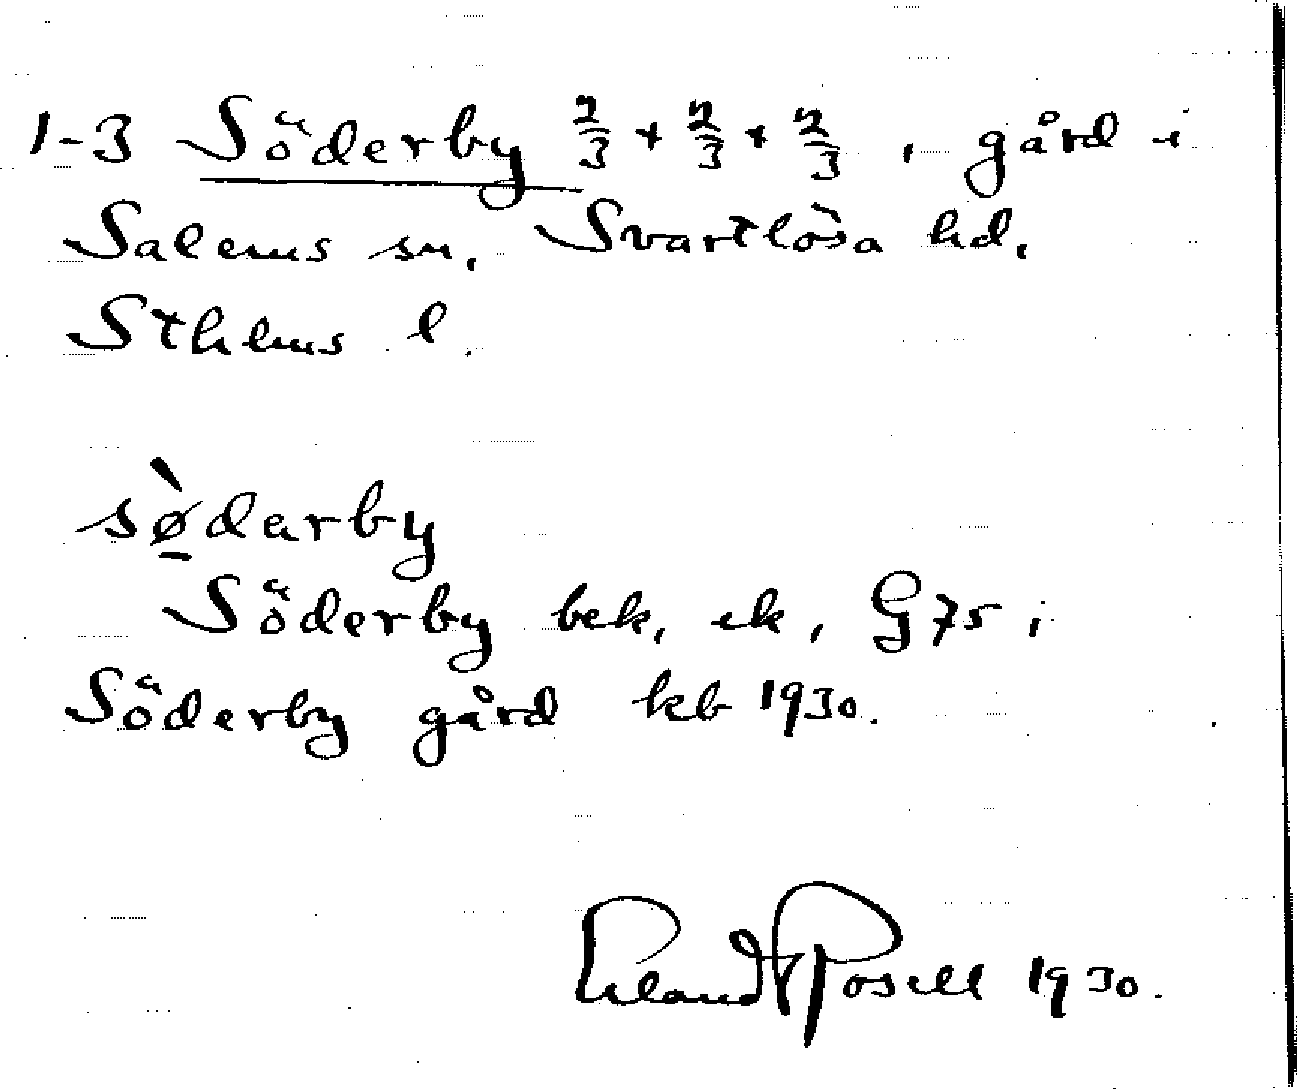 1-3 Söderby 2/3 + 2/3 + 2/3, gård i
Salems sn, Svartlösa hd,
Sthlms l.
sø̱̀darby
Söderby bek, ek, G75,
Söderby gård kb 1930.
Erland Rosell 1930.